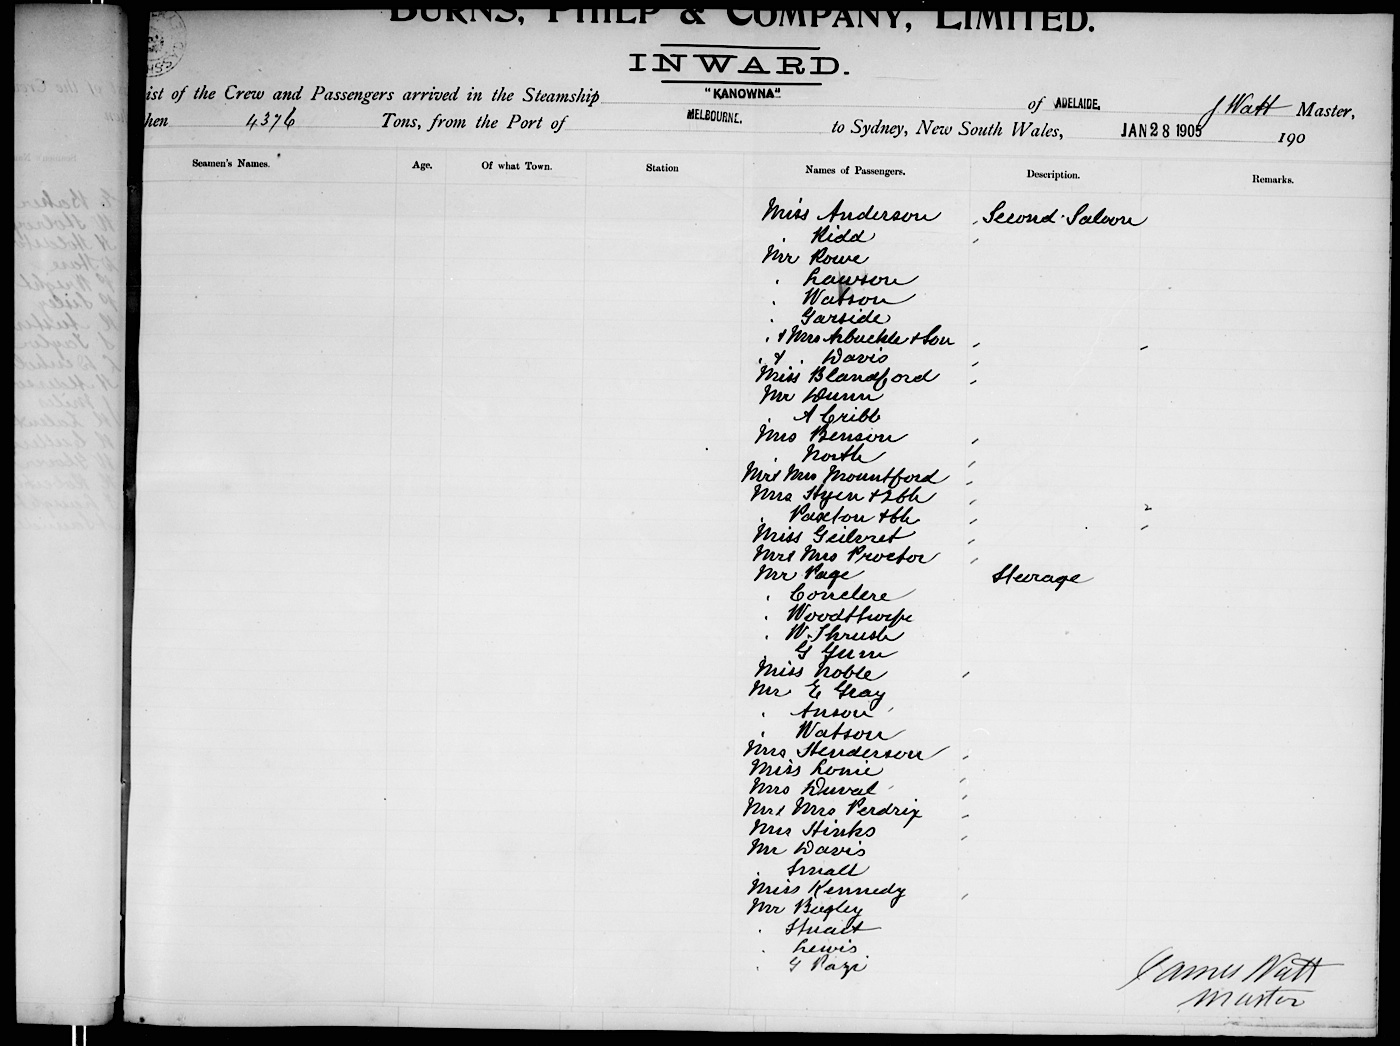 BURNS, PHILP & COMPANY, LIMITED.
INWARD.
ist of the Crew and Passengers arrived in the Steamship "KANOWNA" of ADELAIDE. J Watt Master,
hen 4376 Tons, from the Port of MELBOURNE. to Sydney, New South Wales, JAN 28 1905 190
Seamen's Names. Age. Of what Town. Station Names of Passengers. Description. Remarks.
Miss Anderson Second Saloon
" Kidd
Mr Rowe
" Lawson
" Watson
" Garside
" & Mrs Arbuckle & Son
" & " Davis
Miss Blandford
Mr Dunn
" A Cribb
Mrs Benson
" North
Mr & Mrs Mountford
Mrs & 2 ch
" Paxton & ch
Miss
Mr & Mrs Proctor
Mr Page Steerage
"
" Woodthorpe
" W. Thrush
" G Gunn
Miss Noble
Mr E Gray
" Anson
" Watson
Mrs Henderson
Miss Lonie
Mrs Duval
Mr & Mrs Perdrix
Mrs Hinks
Mr Davis
Small
Miss Kennedy
Mr Bagley
" Stuart
" Lewis
" G
James Watt
Master